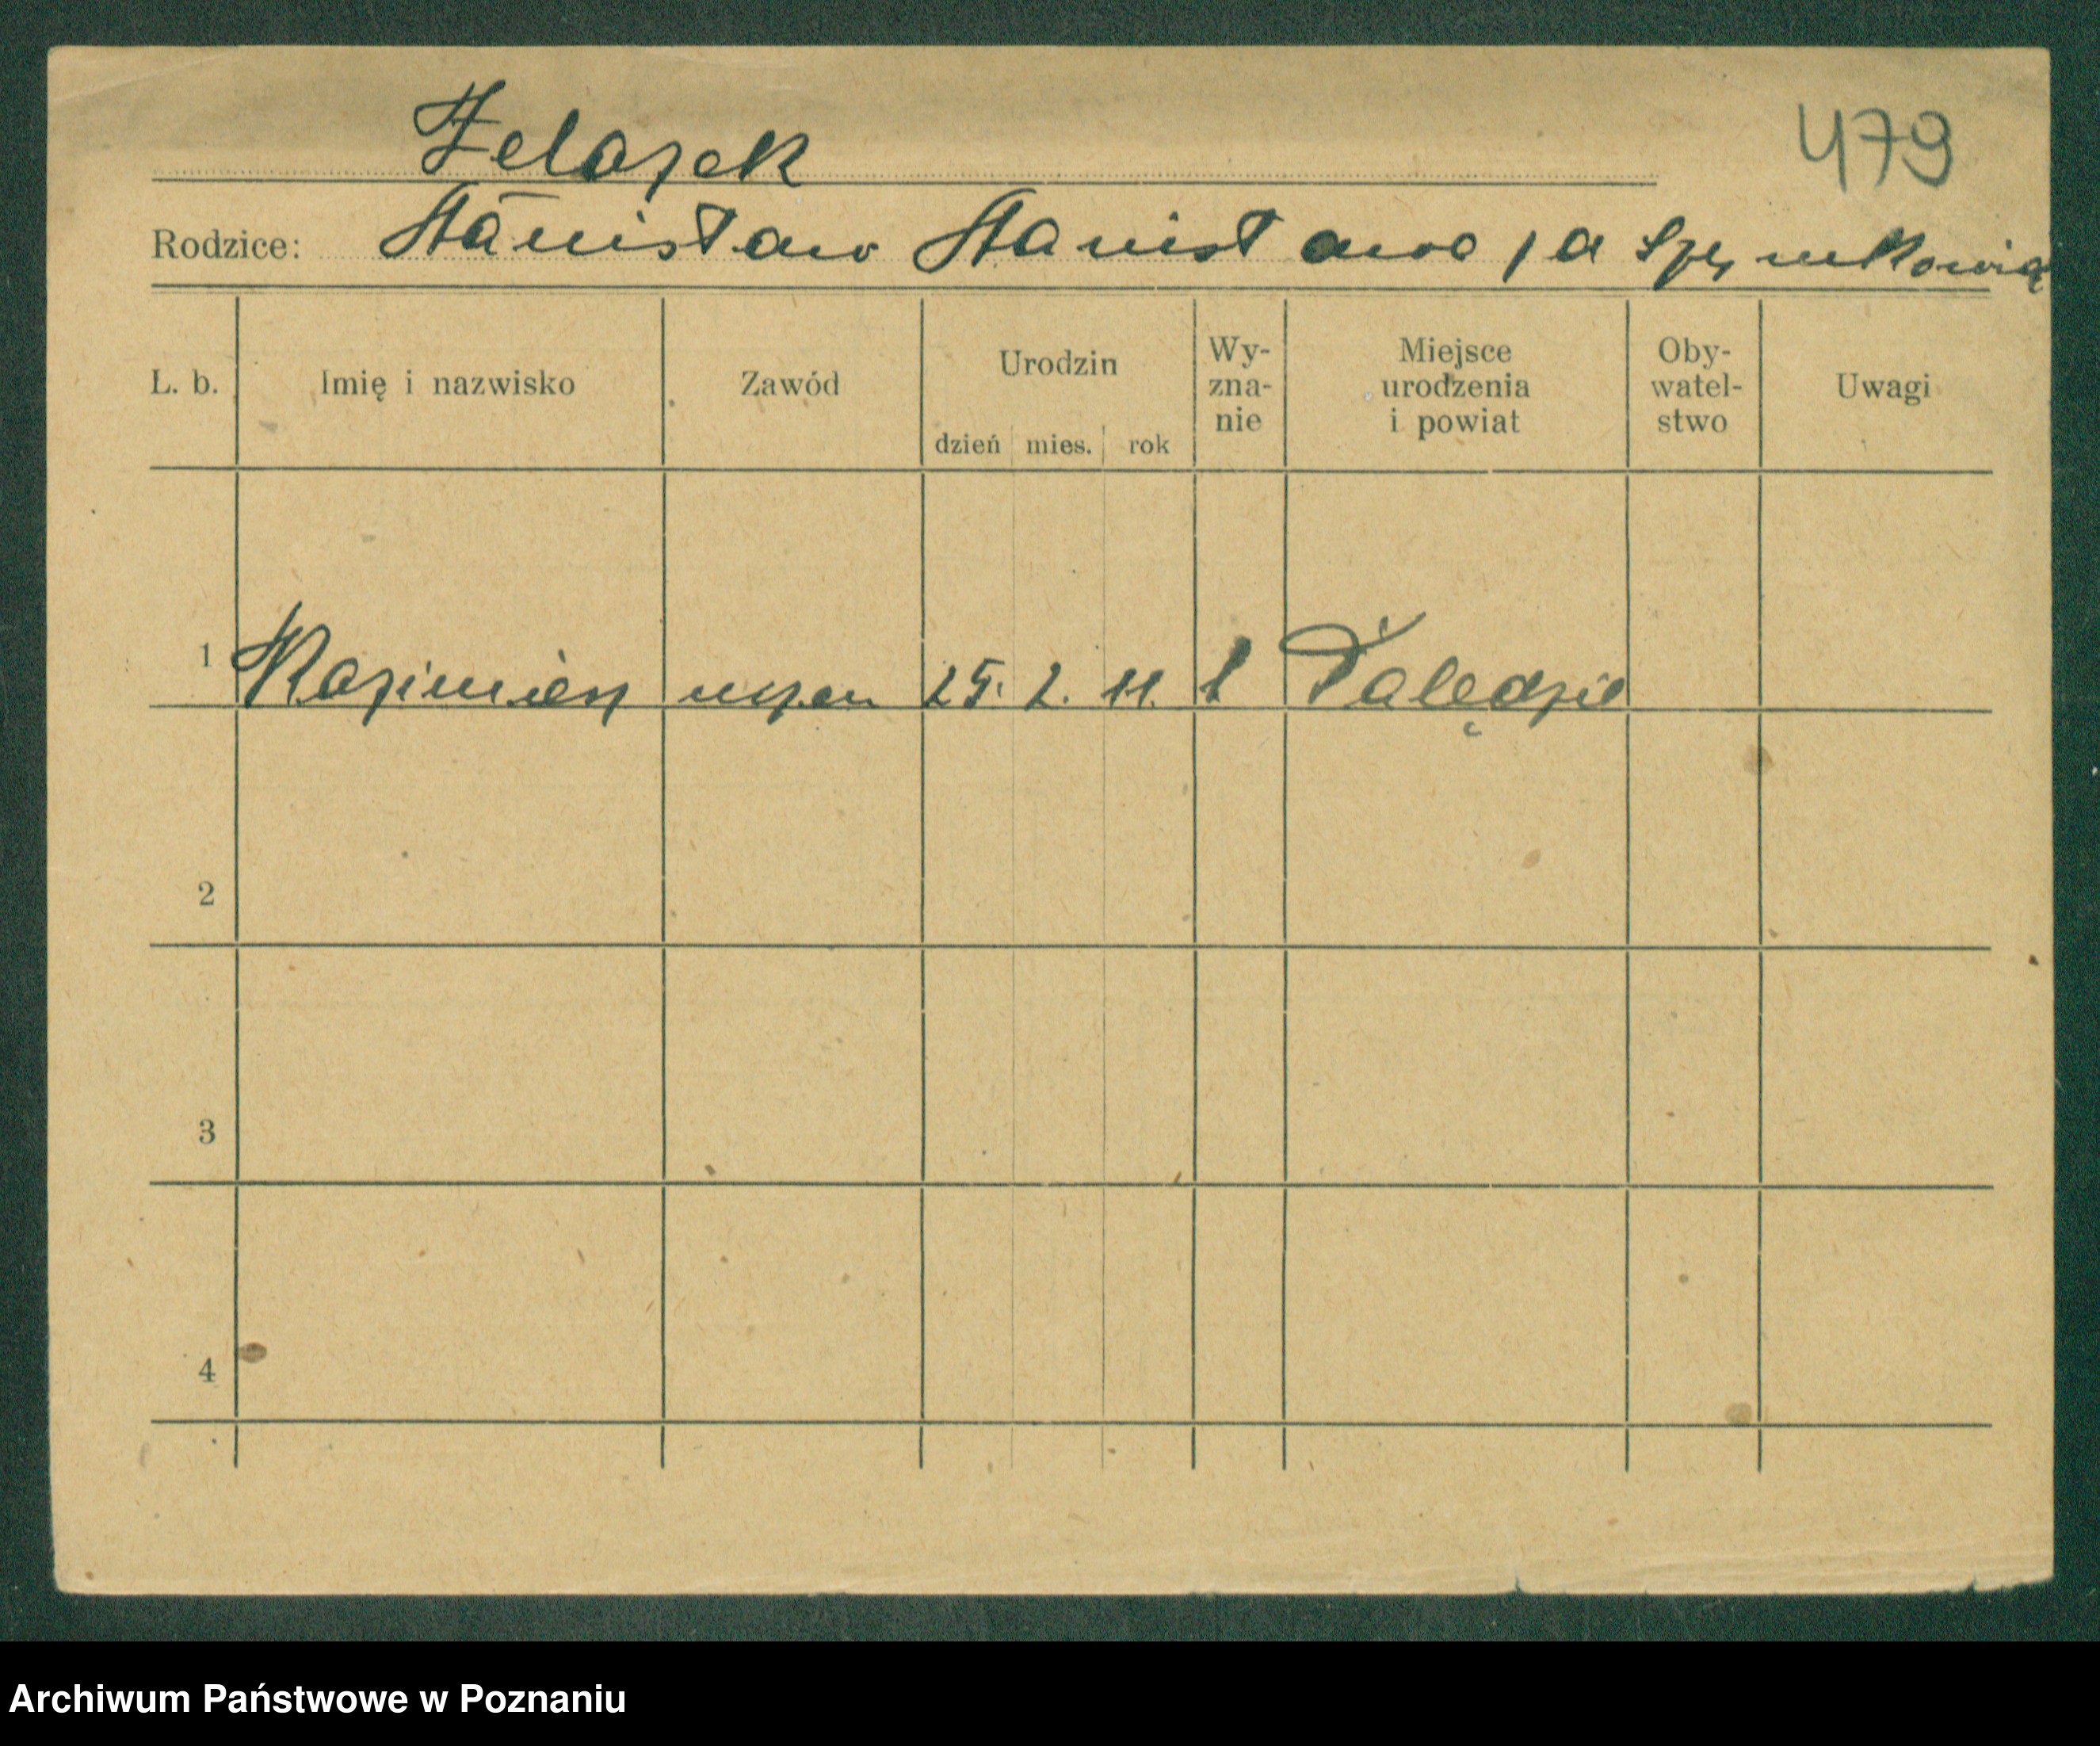 Żelazek
479
Rodzice: Stanisław Stanisława z d Szymkowia
L. b. Imię i nazwisko Zawód Urodzin dzień mies. rok Wy-zna-nie Miejsce urodzenia i powiat Oby-watel-stwo Uwagi
1 Kazimierz uczeń 25. 2. 11.
2
3
4
Archiwum Państwowe w Poznaniu